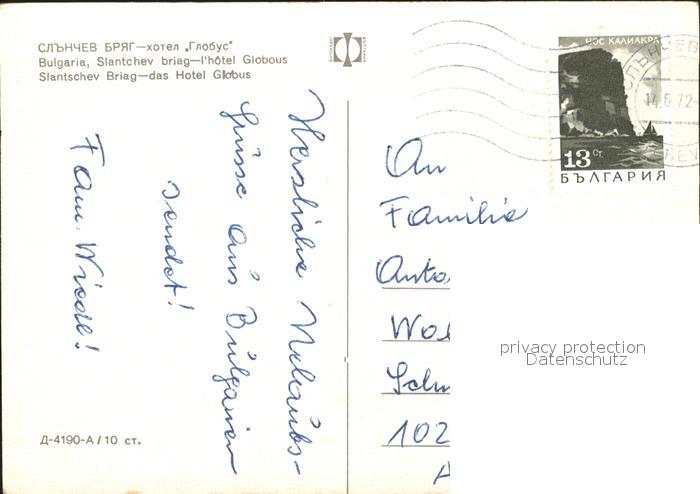 СЛЪНЧЕВ БРЯГ—хотел „Глобус"
Bulgaria, Slantchev briag—l'hôtel Globous
Slantschev Briag—das Hotel Globus
Herzliche Urlaubs-
Grüsse aus Bulgarien
sendet!
Fam. Wiedl!
Д-4190-А/10 ст.
НОС КАЛИАКРА
13 СТ.
БЪЛГАРИЯ
СЛЪНЧЕВ
14.6.72
An
Familie
102
privacy protection
Datenschutz